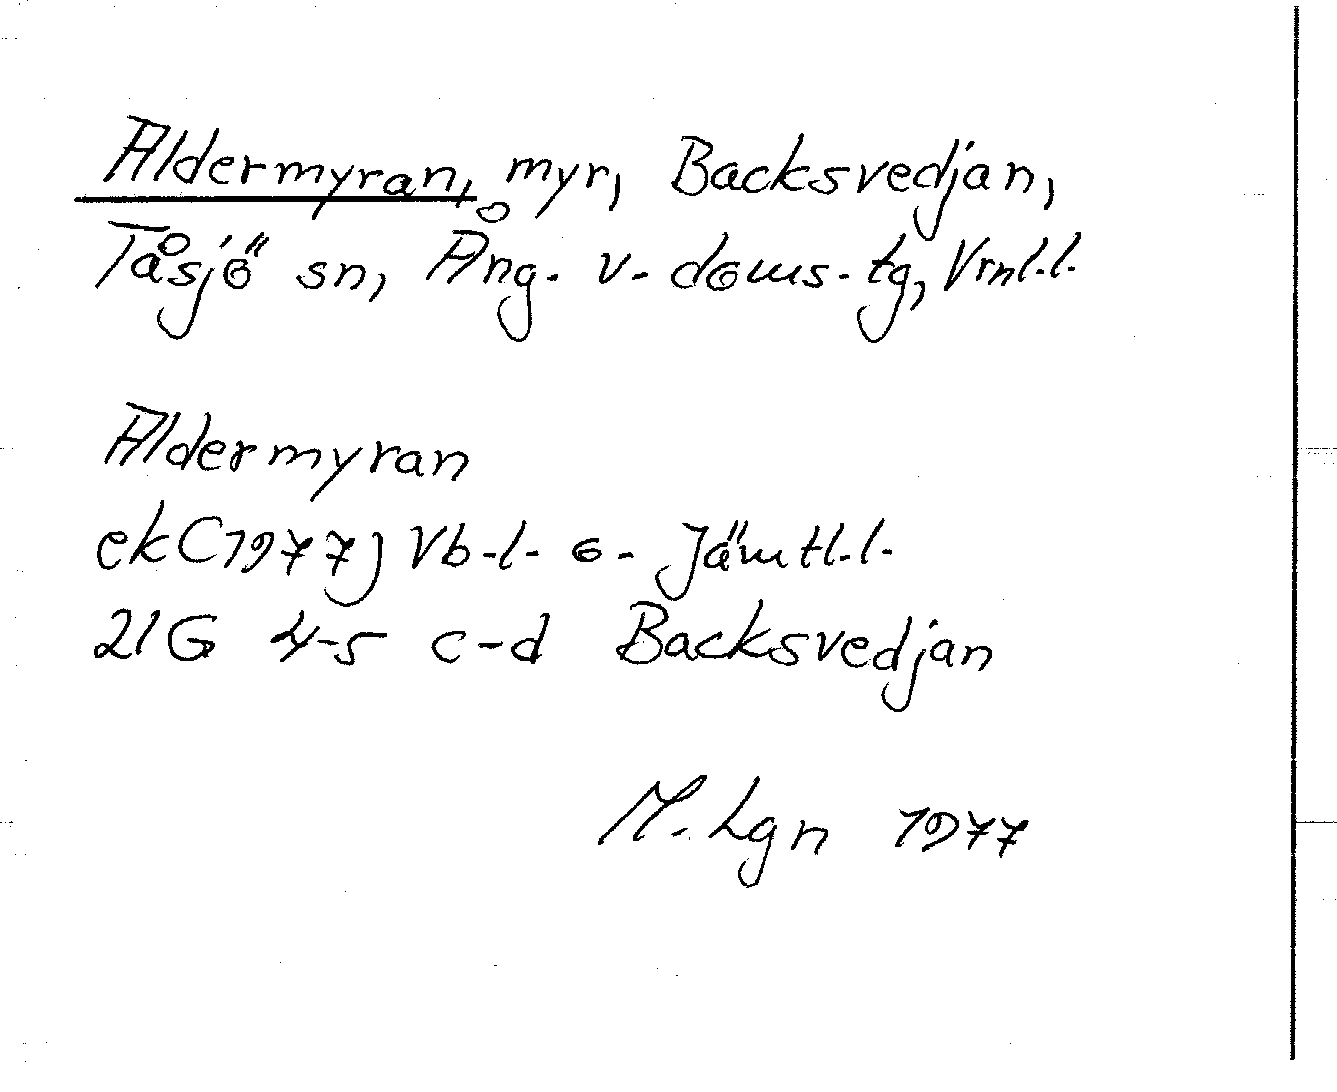 Aldermyran, myr, Backsvedjan,
Tåsjö sn, Ång. v. doms. tg, Vrnl.l.
Aldermyran
ek (1977) Vb-l. o. Jämtl.l.
21G 4-5 c-d Backsvedjan
M. Lgn 1977